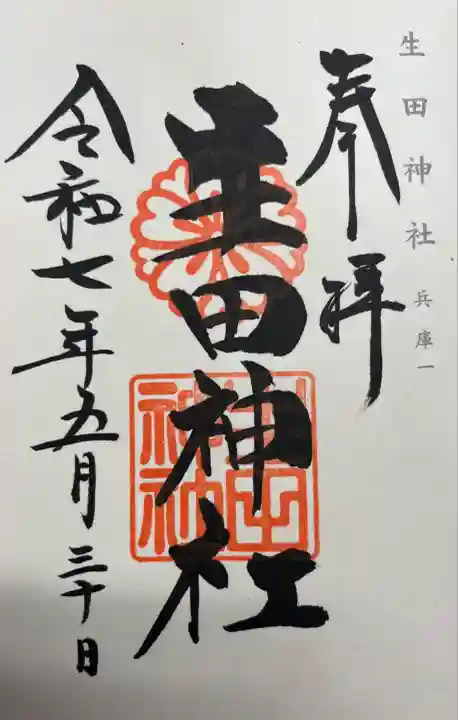 生田神社 兵庫一
奉拝
生田神社
令和七年五月三十日
生田神社